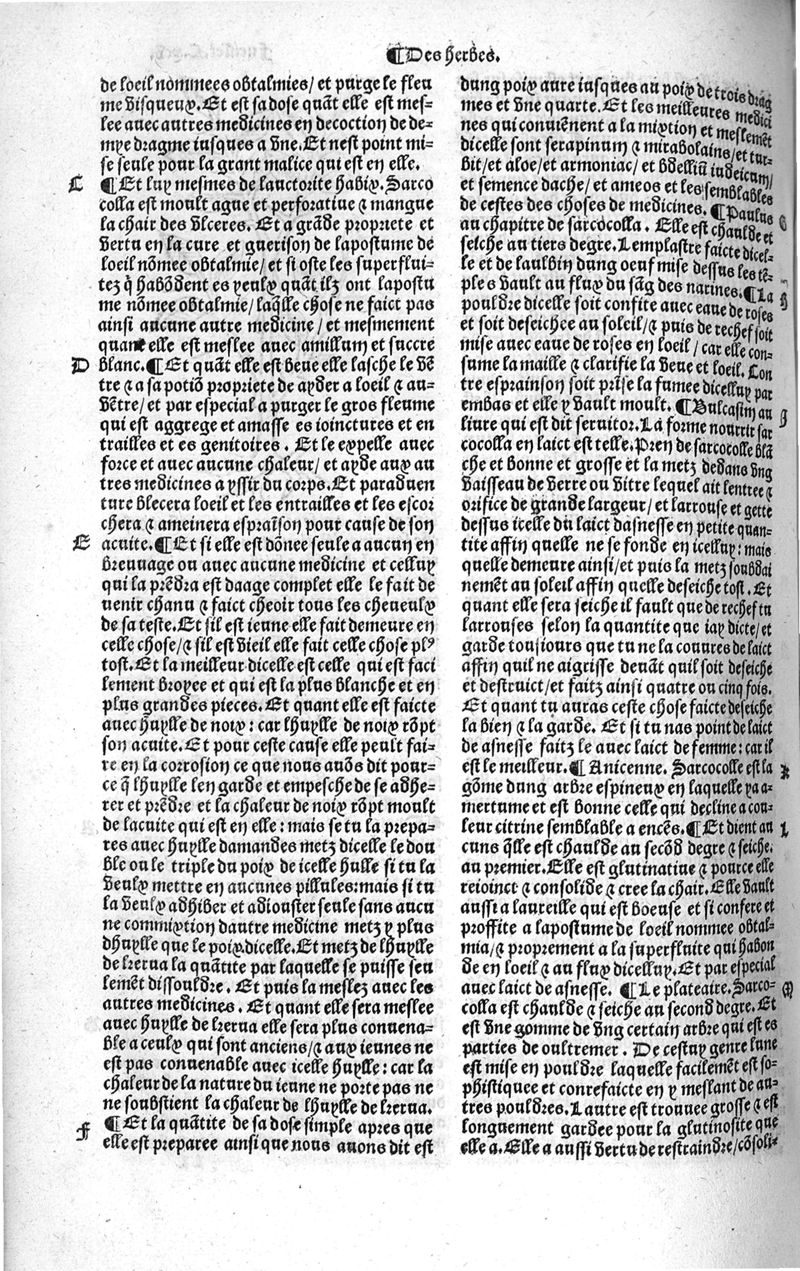 ¶Des herbes.
de loeil nommees obtalmies/ et purge le fleu
me visqueux. Et est sa dose quãt elle est mes-
lee auec autres medicines en decoction de de-
mye dragme iusques a vne. Et nest point mi-
se seule pour la grant malice qui est en elle.
C ¶Et luy mesmes de lauctorite habix. Sarco
colla est moult ague et perforatiue ⁊ mangue
la chair des vlceres. Et a grãde propriete et
vertu en la cure et guerison de lapostume de
loeil nõmee obtalmie/ et si oste les superflui-
tez q̃ habõdent es yeulx quãt ilz ont lapostu
me nõmee obtalmie/ laq̃lle chose ne faict pas
ainsi aucune autre medicine/ et mesmement
quant elle est meslee auec amillum et succre
D blanc. ¶Et quãt elle est beue elle lasche le vẽ
tre ⁊ a sa potiõ propriete de ayder a loeil ⁊ au-
vẽtre/ et par especial a purger le gros fleume
qui est aggrege et amasse es ioinctures et en
trailles et es genitoires. Et le expelle auec
force et auec aucune chaleur/ et ayde aux au
tres medicines a yssir du corps. Et paraduen
ture blecera loeil et les entrailles et les escor
chera ⁊ ameinera espraîson pour cause de son
E acuite. ¶Et si elle est dõnee seule a aucun en
breuuage ou auec aucune medicine et celluy
qui la prẽdra est daage complet elle le fait de
uenir chanu ⁊ faict cheoir tous les cheueulx
de sa teste. Et sil est ieune elle fait demeure en
celle chose/ ⁊ sil est vieil elle fait celle chose plꝰ
tost. Et la meilleur dicelle est celle qui est faci
lement broyee et qui est la plus blanche et en
plus grandes pieces. Et quant elle est faicte
auec huylle de noix: car lhuylle de noix rõpt
son acuite. Et pour ceste cause elle peult fai-
re en la corrosion ce que nous auõs dit pour-
ce q̃ lhuylle len garde et empesche de se adhe-
rer et prẽdre et la chaleur de noix rõpt moult
de lacuite qui est en elle: mais se tu la prepa-
res auec huylle damandes metz dicelle le dou
ble ou le triple du poix de icelle hulle si tu la
veulx mettre en aucunes pillules: mais si tu
la veulx adhiber et adiouster seule sans aucu
ne commixtion dautre medicine metz y plus
dhuylle que le poix dicelle. Et metz de lhuylle
de kerua la quãtite par laquelle se puisse seu
lemẽt dissouldre. Et puis la meslez auec les
autres medicines. Et quant elle sera meslee
auec huylle de kerua elle sera plus conuena-
ble a ceulx qui sont anciens/ ⁊ aux ieunes ne
est pas conuenable auec icelle huylle: car la
chaleur de la nature du ieune ne porte pas ne
ne soubstient la chaleur de lhuylle de kerua.
F ¶Et la quãtite de sa dose simple apres que
elle est preparee ainsi que nous auons dit est
dung poix aure iusques au poix de trois drag
mes et vne quarte. Et les meilleures medici
nes qui conuiẽnent a la mixtion et meslemẽt
dicelle sont serapinum ⁊ mirabolains/ et tur-
bit/ et aloe/ et armoniac/ et bdelliũ iudeicum/
et semence dache/ et ameos et les semblables
de cestes des choses de medicines. ¶Paulus G
au chapitre de sarcocolla. Elle est chaulde et
seiche au tiers degre. Lemplastre faicte dicel-
le et de laulbin dung oeuf mise dessus les tẽ-
ples vault au flux du sãg des narines. ¶La H
pouldre dicelle soit confite auec eaue de roses
et soit deseichee au soleil/ ⁊ puis de rechef soit
mise auec eaue de roses en loeil/ car elle con-
sume la maille ⁊ clarifie la veue et loeil. Con
tre esprainson soit prĩse la fumee dicelluy par
embas et elle y vault moult. ¶Bulcasin au I
liure qui est dit seruitor. La forme nourrir sar
cocolla en laict est telle. Pren de sarcocolle blã
che et bonne et grosse et la metz dedans vng
vaisseau de verre ou vitre lequel ait lentree ⁊
orifice de grande largeur/ et larrouse et gette
dessus icelle du laict dasnesse en petite quan-
tite affin quelle ne se fonde en icelluy: mais
quelle demeure ainsi/ et puis la metz soubdai
nemẽt au soleil affin quelle deseiche tost. Et
quant elle sera seiche il fault que de rechef tu
larrouses selon la quantite que iay dicte/ et
garde tousiours que tu ne la couures de laict
affin quil ne aigrisse deuãt quil soit deseiche
et destruict/ et faitz ainsi quatre ou cinq fois.
Et quant tu auras ceste chose faicte deseiche
la bien ⁊ la garde. Et si tu nas point de laict
de asnesse faitz le auec laict de femme: car il
est le meilleur. ¶Auicenne. Sarcocolle est la K
gõme dung arbre espineux en laquelle y a a-
mertume et est bonne celle qui decline a cou-
leur citrine semblable a encẽs. ¶Et dient au L
cuns q̃lle est chaulde au secõd degre ⁊ seiche.
au premier. Elle est glutinatiue ⁊ pource elle
reioinct ⁊ consolide ⁊ cree la chair. Elle vault
aussi a laureille qui est boeuse et si confere et
proffite a lapostume de loeil nommee obtal-
mia/ ⁊ proprement a la superfluite qui habon
de en loeil ⁊ au flux dicelluy. Et par especial
auec laict de asnesse. ¶Le plateaire. Sarco- M
colla est chaulde ⁊ seiche au second degre. Et
est vne gomme de vng certain arbre qui est es
parties de oultremer. De cestuy genre lune
est mise en pouldre laquelle facilemẽt est so-
phistiquee et conrefaicte en y meslant de au-
tres pouldres. Lautre est trouuee grosse ⁊ est
longuement gardee pour la glutinosite que
elle a. Elle a aussi vertu de restraindre/ cõsoli-